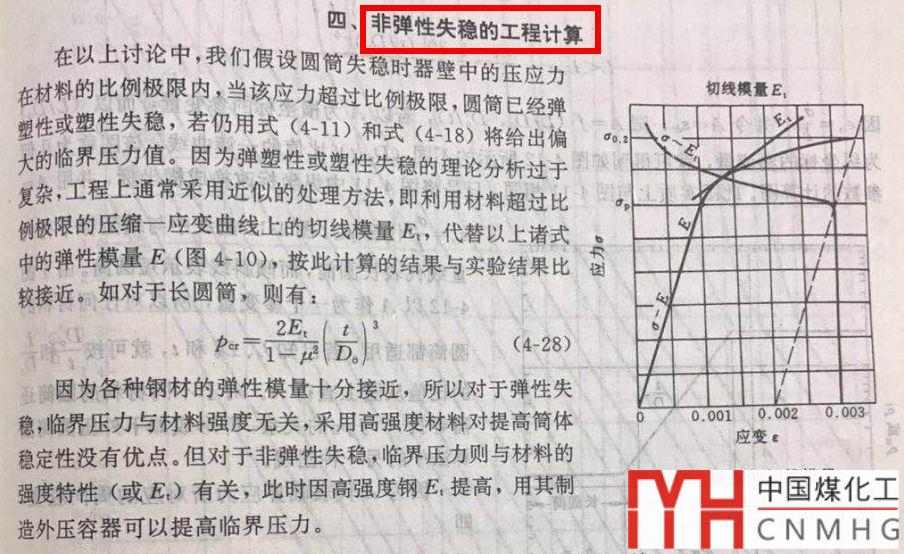 四、非弹性失稳的工程计算
在以上讨论中，我们假设圆筒失稳时器壁中的压应力
在材料的比例极限内，当该应力超过比例极限，圆筒已经弹
塑性或塑性失稳，若仍用式（4-11）和式（4-18）将给出偏
大的临界压力值。因为弹塑性或塑性失稳的理论分析过于
复杂，工程上通常采用近似的处理方法，即利用材料超过比
例极限的压缩—应变曲线上的切线模量 Et，代替以上诸式
中的弹性模量 E（图 4-10），按此计算的结果与实验结果比
较接近。如对于长圆筒，则有：
pcr=2Et/(1-μ²)(t/Do)³ (4-28)
因为各种钢材的弹性模量十分接近，所以对于弹性失
稳，临界压力与材料强度无关，采用高强度材料对提高筒体
稳定性没有优点。但对于非弹性失稳，临界压力则与材料的
强度特性（或 Et）有关，此时因高强度钢 Et 提高，用其制
造外压容器可以提高临界压力。
切线模量 Et
σ0.2
σ-Et
Et
σp
E
应力 σ
σ-E
0 0.001 0.002 0.003
应变 ε
中国煤化工
CNMHG